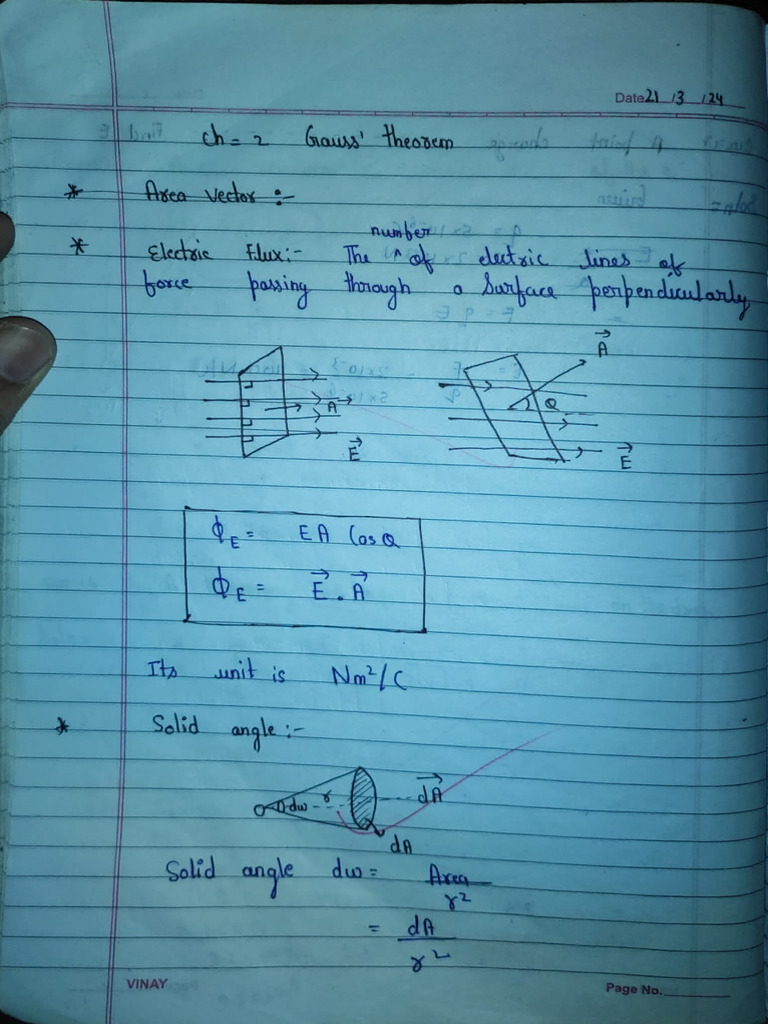 Date 21/3/24
ch = 2 Gauss' theorem
* Area vector :-
number
* Electric Flux:- The ^ of electric lines of
force passing through a Surface perpendicularly
A
A
Q
E
E
ϕE = EA Cos Q
ϕE = E . A
Its unit is Nm²/C
* Solid angle :-
dw r dA
dA
Solid angle dw = Area
r²
= dA
r²
VINAY Page No.